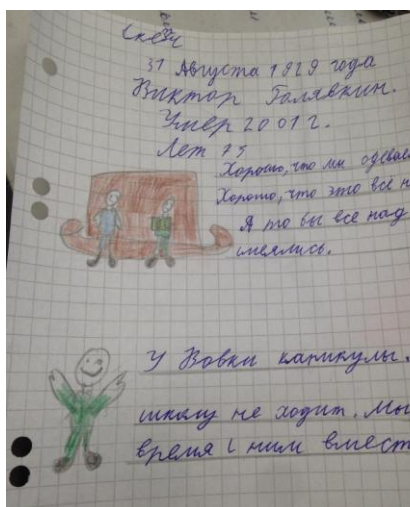 31 Августа 1929 года
Виктор Голявкин.
Умер 2001 г.
Лет
Хорошо, что мы
Хорошо, что это все н
А то бы все над
смеялись.
У Вовки каникулы.
школу не ходит. Мы
время с ним вмест